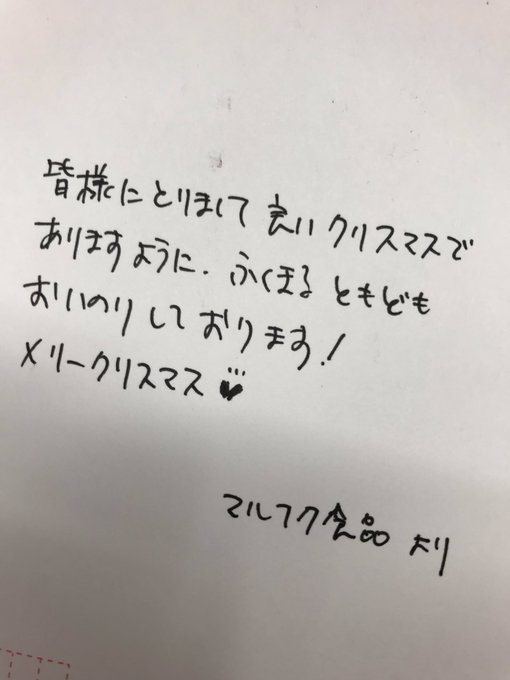 皆様にとりまして良いクリスマスで
ありますように、ふくまるともども
おいのりしております!
メリークリスマス♥
マルフク食品より